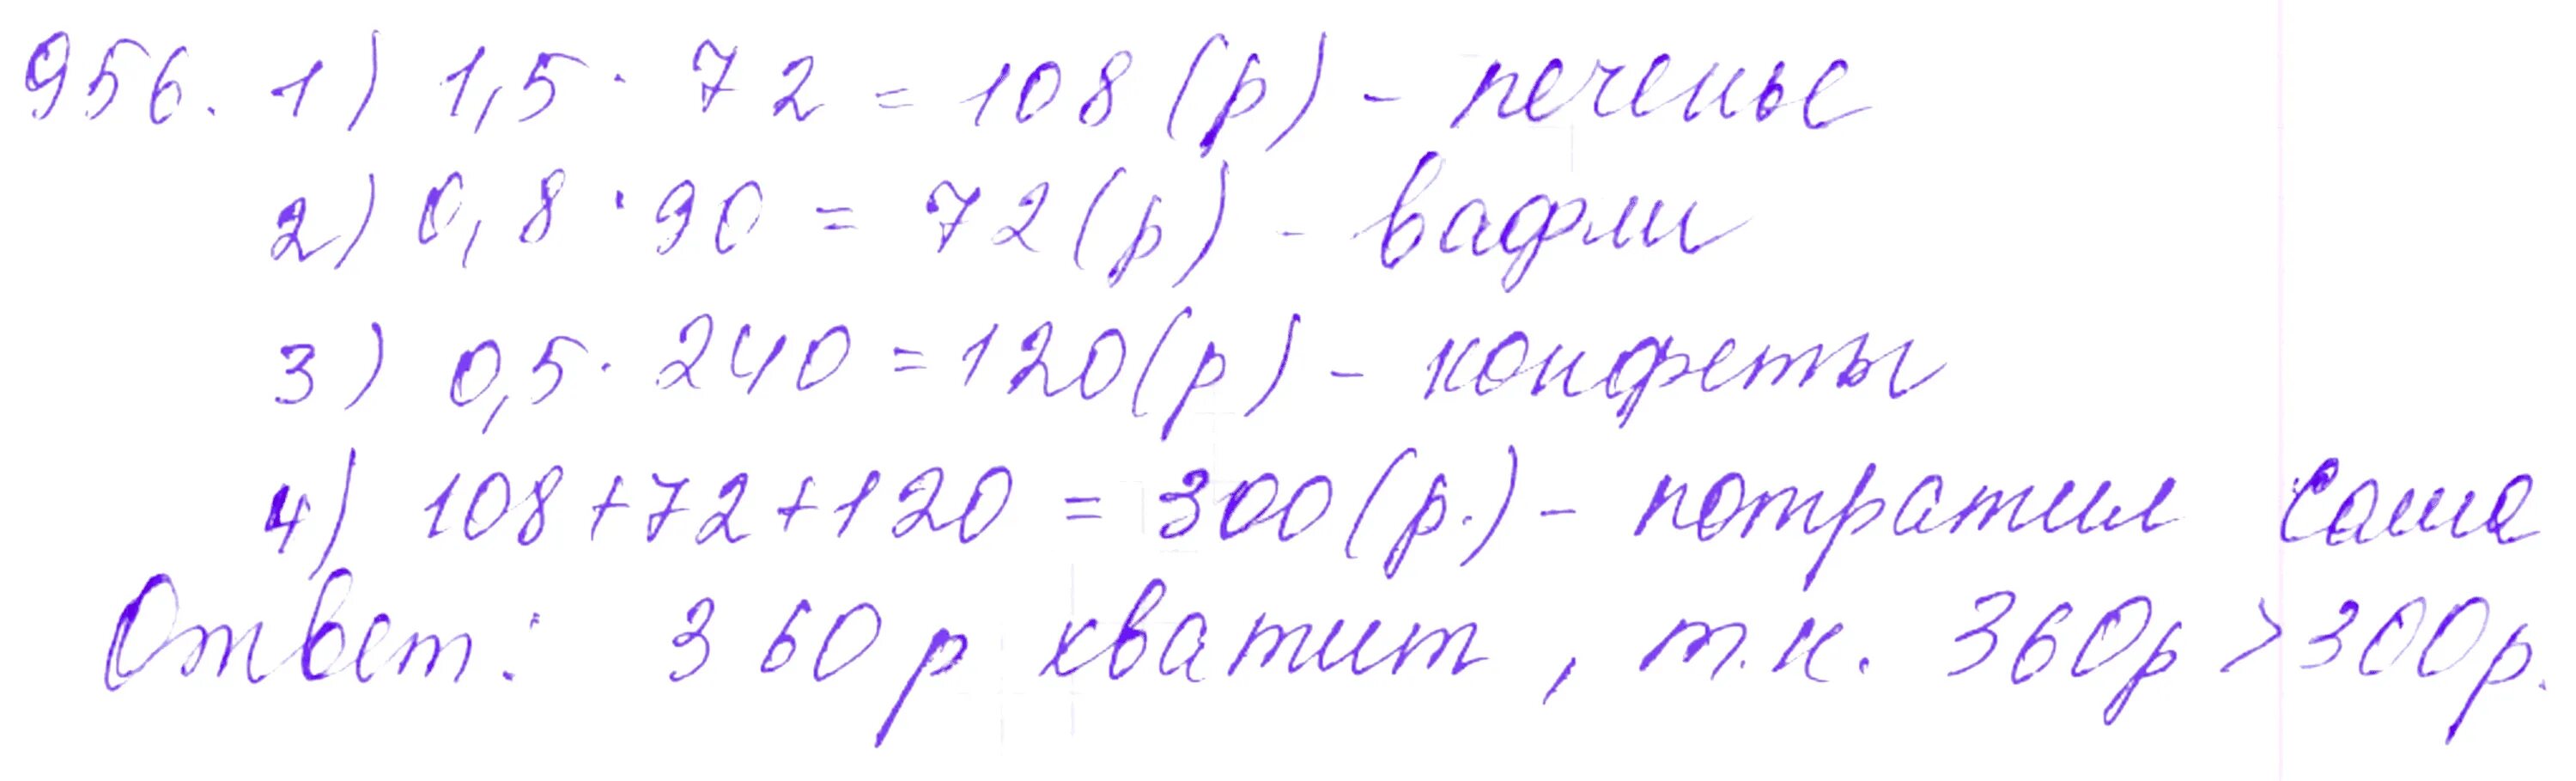 956. 1) 1,5 · 72 = 108 (р) - печенье
2) 0,8 · 90 = 72 (р) - вафли
3) 0,5 · 240 = 120 (р) - конфеты
4) 108 + 72 + 120 = 300 (р.) - потратил Саша
Ответ: 360 р хватит, т.к. 360р > 300р.